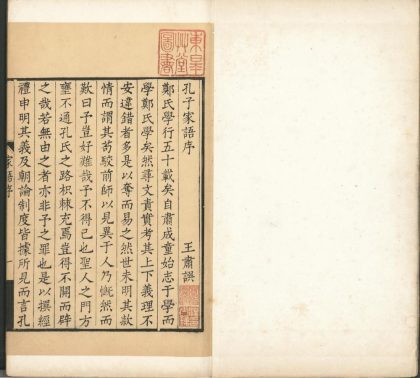 孔子家語序
王肅譔
鄭氏學行五十載矣自肅成童始志于學而
學鄭氏學矣然尋文責實考其上下義理不
安違錯者多是以奪而易之然世未明其款
情而謂其苟駁前師以見異于人乃慨然而
歎曰予豈好難哉予不得已也聖人之門方
壅不通孔氏之路枳棘充焉豈得不開而辟
之哉若無由之者亦非予之罪也是以撰經
禮申明其義及朝論制度皆據所見而言孔
家語序
一
東皋
艸堂
圖書